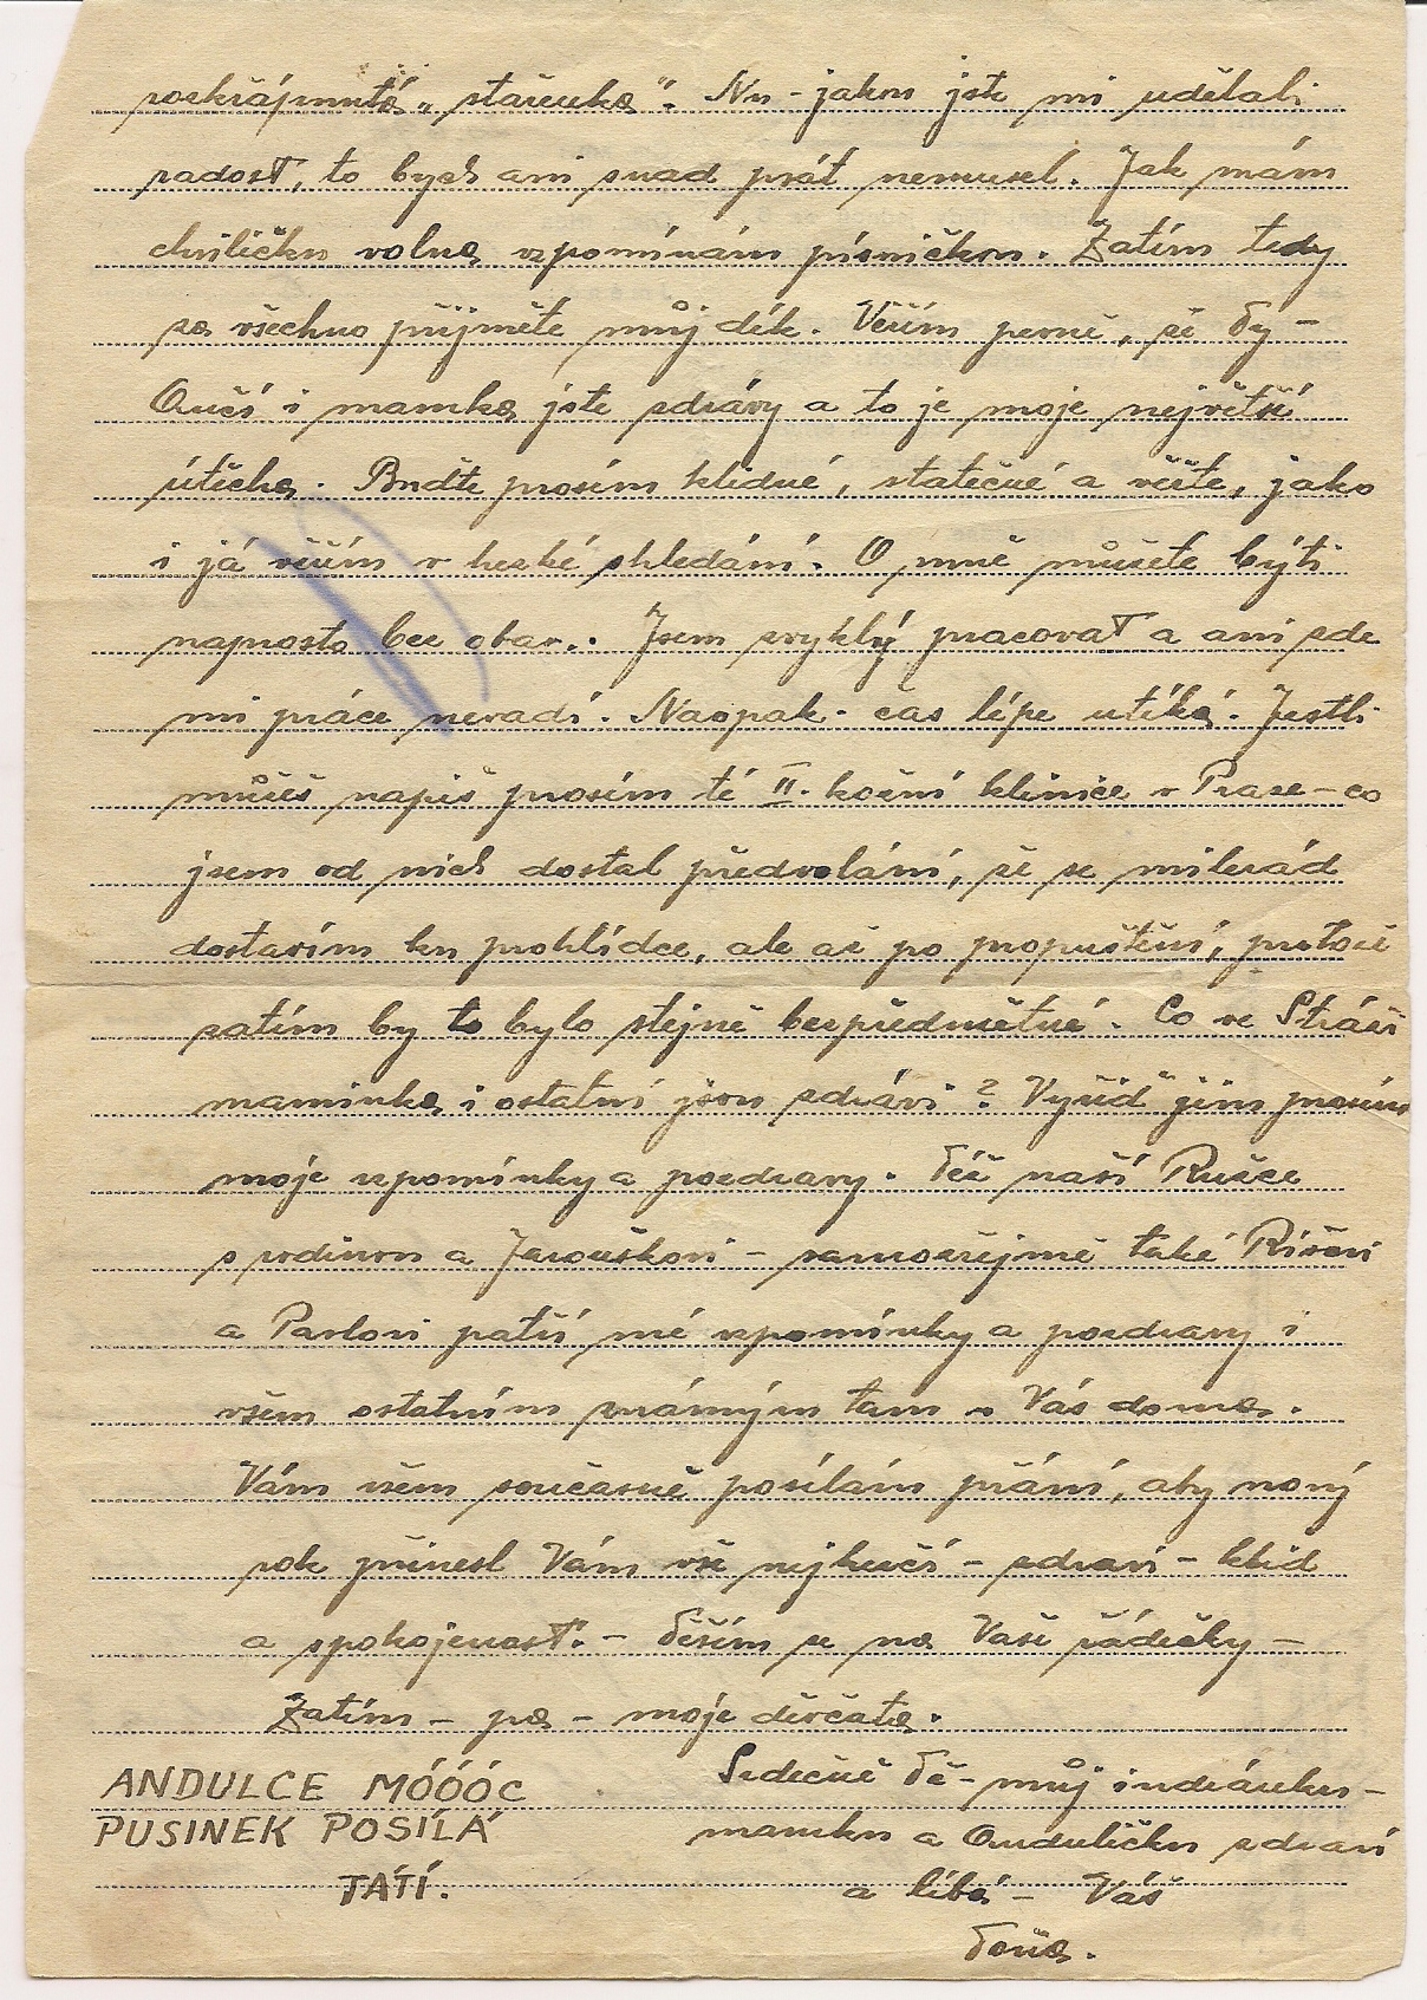 pookřájmutá „stařenka“. Nu - jakou jste mi udělali
radosť, to bych ani snad psát nemusel. Jak mám
chviličku volna, vzpomínám písničkou. Zatím tedy
za všechno přijměte můj dík. Věřím pevně, že Ty -
Anči i mamka jste zdrávy a to je moje největší
útěcha. Buďte prosím klidné, statečné a věřte, jako
i já věřím v hezké shledání. O mně můžete býti
naprosto bez obav. Jsem zvyklý pracovať a ani zde
mi práce nevadí. Naopak - čas lépe utíká. Jestli
můžeš napiš prosím té II. kožní klinice v Praze - co
jsem od nich dostal předvolání, že se milerád
dostavím ku prohlídce, ale až po propuštění, protože
zatím by to bylo stejně bezpředmětné. Co ve Stráži
maminka i ostatní jsou zdrávi? Vyřiď jim prosím
moje vzpomínky a pozdravy. Též naší Růžce
s rodinou a Jarouškovi - samozřejmě také Ríšovi
a Pavlovi patří mé vzpomínky a pozdravy i
všem ostatním známým tam u Vás doma.
Vám všem současně posílám přání, aby nový
rok přinesl Vám vše nejhezčí - zdraví - klid
a spokojenosť. - Těším se na Vaše řádečky -
Zatím - pa - moje děvčata.
Srdečně Tě - můj indiánku -
ANDULCE MÓÓÓC
mamku a Anduličku zdraví
PUSINEK POSÍLÁ
a líbá - Váš
TÁTÍ.
Toňa.